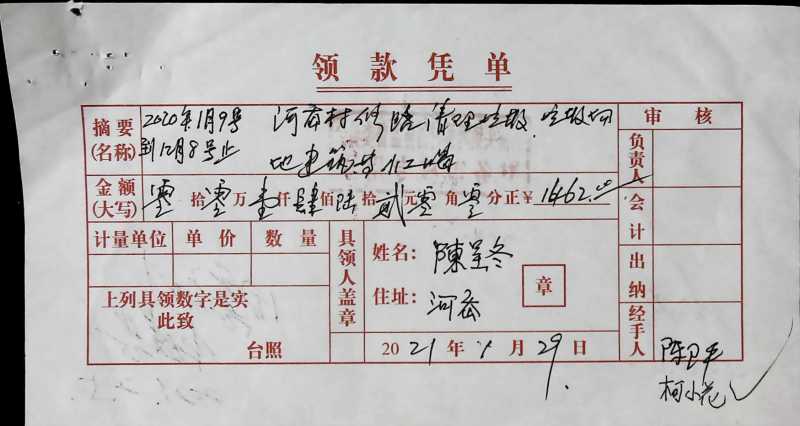 领款凭单
摘要
(名称)
2020年1月9号
到12月8号止
河 村修路清理垃圾
地
审 核
金额
(大写)
零拾零万壹仟肆佰陆拾贰元零角零分正¥1462.00
计量单位 单价 数量
上列具领数字是实
此致
台照
具领人盖章
姓名:陳 冬
住址:河
章
2021年 月29日
负责人
会计
出纳
经手人
陈卫平
柯小花